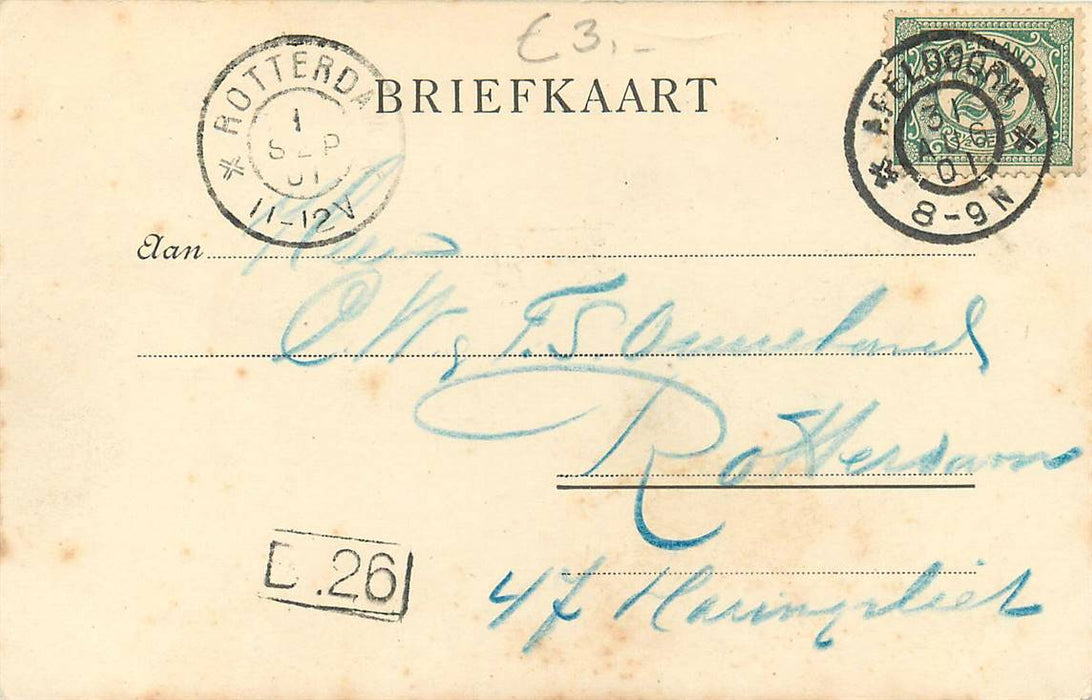 £3,-
ROTTERDA
1
SEP
01
11-12V
BRIEFKAART
NEDERLAND
APELDOORN
31
AUG
01
8-9N
Aan
C.W. & F.S. Ommeland
Rotterdam
47 Haringvliet
B.26